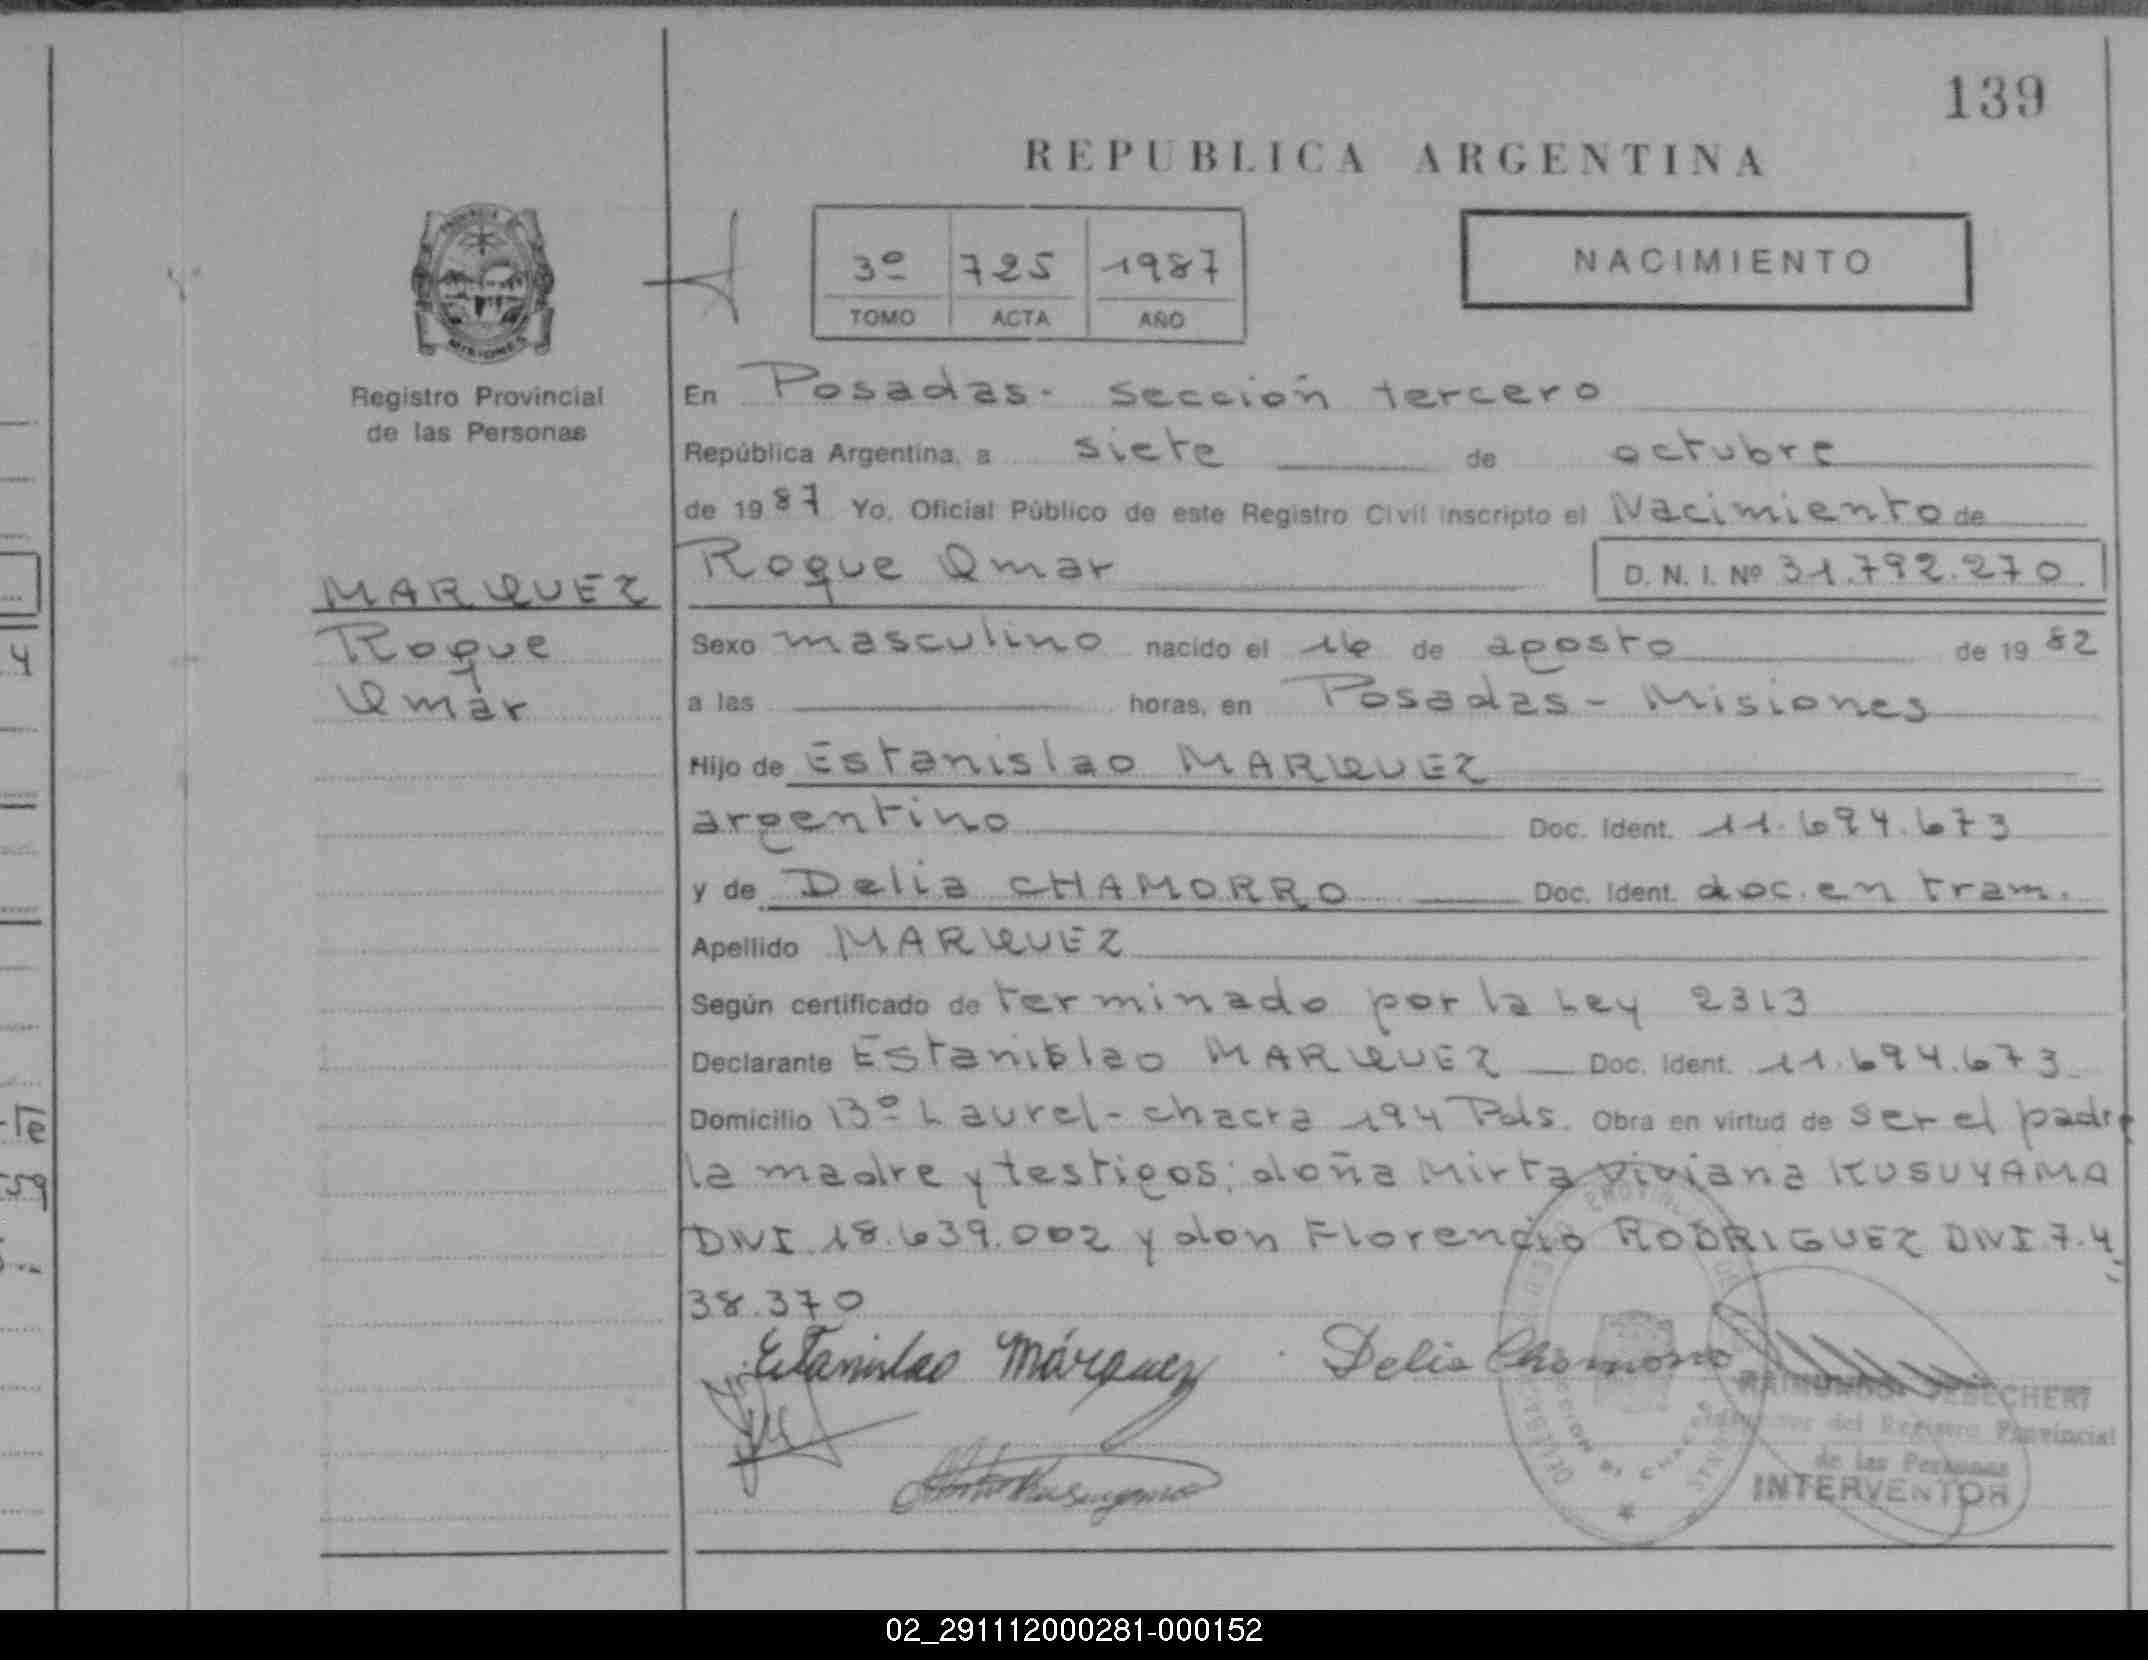 139
REPUBLICA ARGENTINA
3º 725 1987
TOMO ACTA AÑO
NACIMIENTO
MISIONES
Registro Provincial
de las Personas
En Posadas - sección tercero
República Argentina, a siete de octubre
de 1987 Yo, Oficial Público de este Registro Civil inscripto el Nacimiento de
MARQUEZ
Roque
Omar
Roque Omar D. N. I. Nº 31.792.270
Sexo masculino nacido el 16 de agosto de 1982
a las horas, en Posadas - Misiones
Hijo de Estanislao MARQUEZ
argentino Doc. Ident. 11.694.673
y de Delia CHAMORRO Doc. Ident. doc. en tram.
Apellido MARQUEZ
Según certificado de terminado por la Ley 2313
Declarante Estanislao MARQUEZ Doc. Ident. 11.694.673
Domicilio Bº Laurel - chacra 194 Pds. Obra en virtud de ser el padre
la madre y testigos; doña Mirta Viviana KUSUYAMA
DNI 18.639.002 y don Florencio RODRIGUEZ DNI 7.4
38.370
Estanislao Márquez Delia Chamorro
del Registro Provincial
de las Personas
INTERVENTOR
4
Te
59
02_291112000281-000152